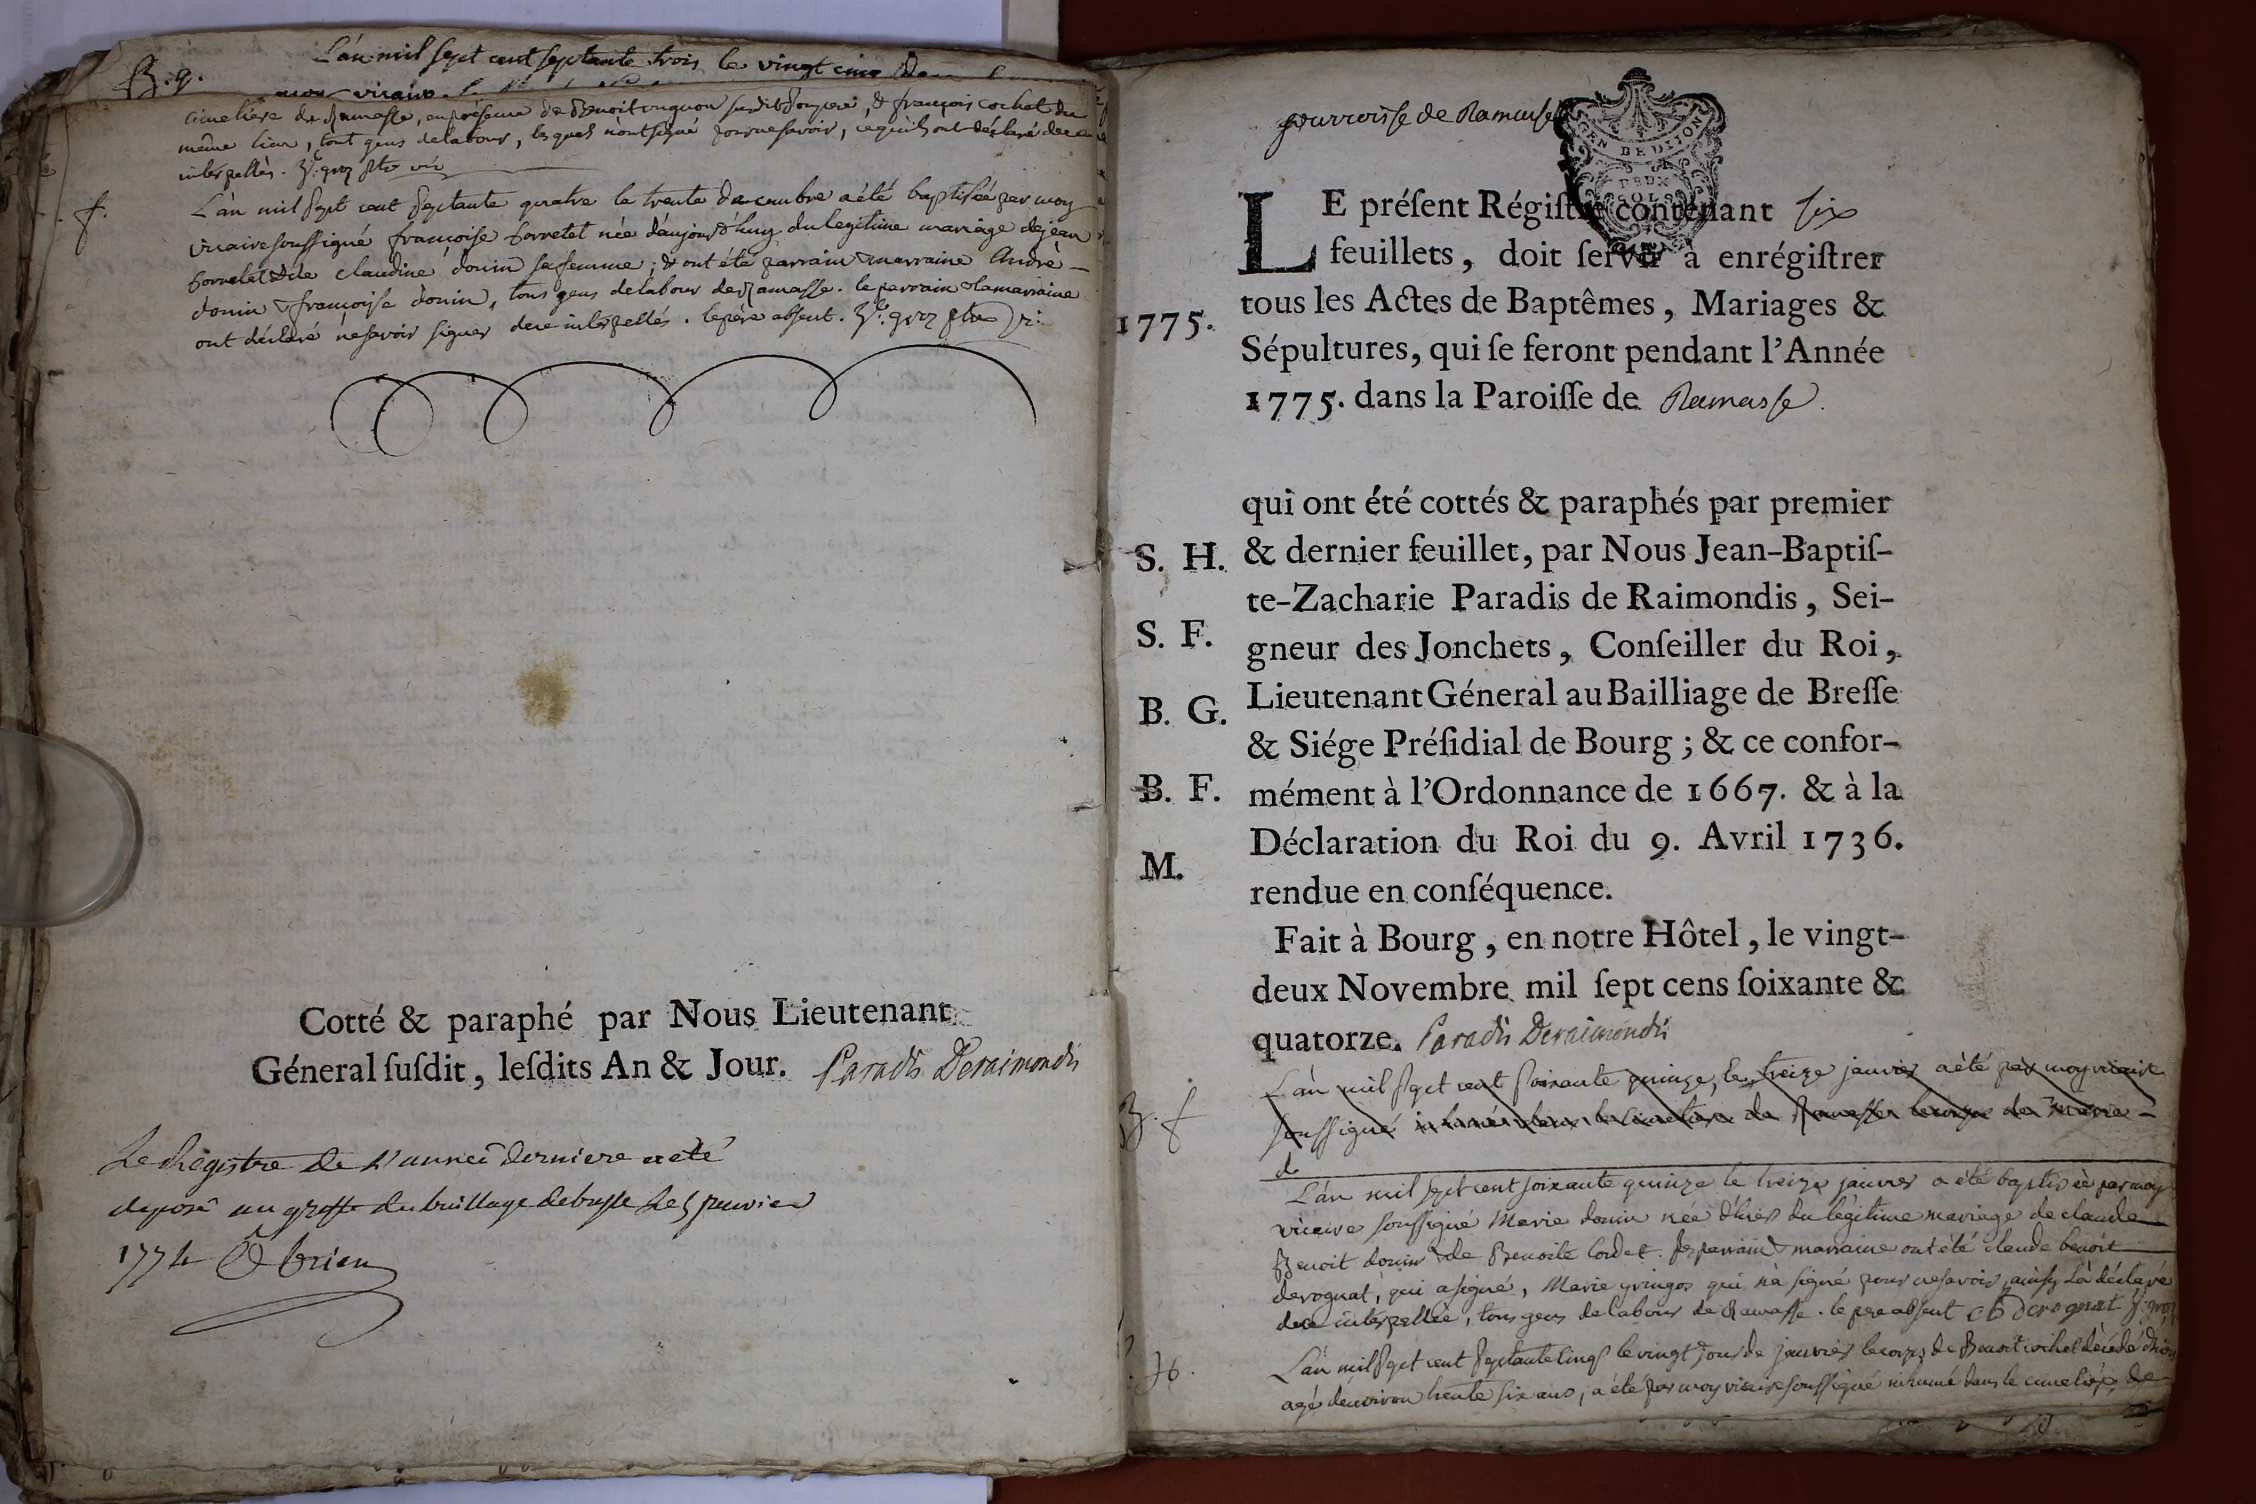 B. g.
L'an mil sept cent septante trois le vingt cinq
cimetière de Ramasse, en présence de Benoit susdit son pere, & françois cochet du
même lieu, tout gens de labour, lesquels n'ont signé pour ne savoir, ce qu'ils ont déclaré de ce
interpellés.
f.
L'an mil sept cent septante quatre le trente decembre a été baptisée par moy
vicaire soussigné françoise forretet née d'aujourd'huy du legitime mariage de jean
forretet & de claudine donin sa femme ; & ont été parrain & marraine André
donin & françoise donin, tous gens de labour de Ramasse. le parrain & la marraine
ont déclaré ne savoir signer de ce interpellés. le père absent.
Cotté & paraphé par Nous Lieutenant
Géneral ſuſdit, leſdits An & Jour. Paradis Deraimondis
Le Registre de L'année derniere a eté
deposé au greffe du bailliage de bresse le 5 janvier
1774
parroisse de Ramasse
GEN DE DIJON
DEUX
SOLS
LE préſent Régiſtre contenant six
feuillets, doit ſervir à enrégiſtrer
tous les Actes de Baptêmes, Mariages &
1775.
Sépultures, qui ſe feront pendant l'Année
1775. dans la Paroiſſe de Ramasse.
qui ont été cottés & paraphés par premier
S. H.
& dernier feuillet, par Nous Jean-Baptiſ-
te-Zacharie Paradis de Raimondis, Sei-
S. F.
gneur des Jonchets, Conſeiller du Roi,
Lieutenant Géneral au Bailliage de Breſſe
B. G.
& Siége Préſidial de Bourg ; & ce confor-
B. F.
mément à l'Ordonnance de 1667. & à la
Déclaration du Roi du 9. Avril 1736.
M.
rendue en conſéquence.
Fait à Bourg, en notre Hôtel, le vingt-
deux Novembre mil ſept cens ſoixante &
quatorze. Paradis Deraimondis
L'an mil sept cent soixante quinze, le treize janvier a été par moy vicaire
B. f
soussigné inhumé dans le cimetiere de Ramasse le corps de Marie
de
L'an mil sept cent soixante quinze le treize janvier a été baptisée par moy
vicaire soussigné Marie donin née d'hier du légitime mariage de claude
Benoit donin & de Benoite cordet. ses parrain & marraine ont été claude benoit
derognat, qui a signé, Marie gringoz qui n'a signé pour ne savoir, ainsy l'a déclaré
de ce interpellée, tous gens de labour de Ramasse. le pere absent cb derognat
L'an mil sept cent septante cinq le vingt jour de janvier le corps de Benoit cochet décédé d'hier
agé d'environ trente six ans, a été par moy vicaire soussigné inhumé dans le cimetière de